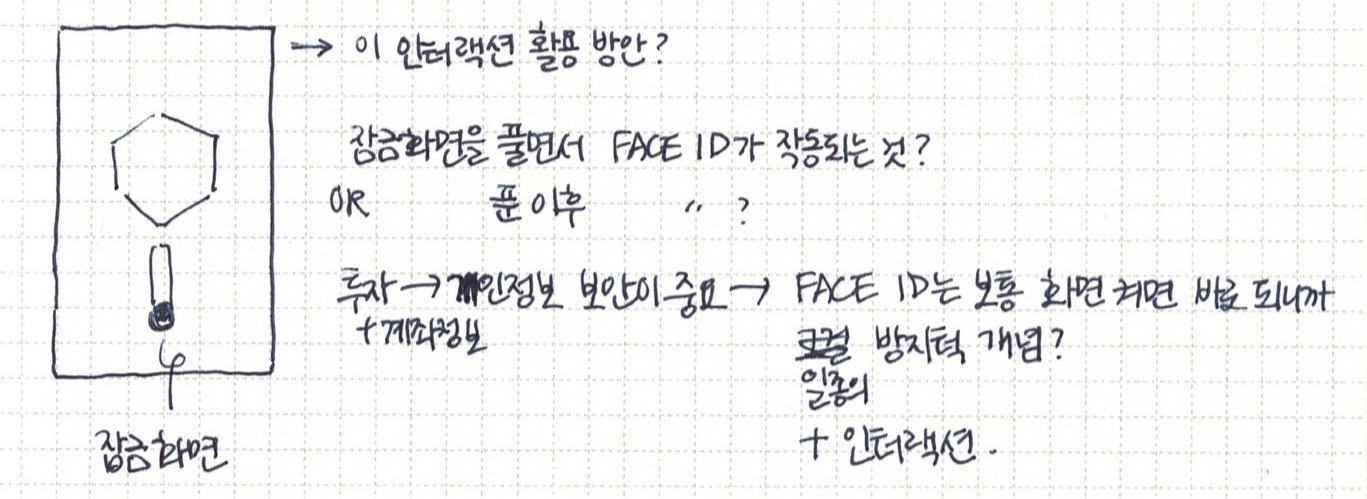 → 이 인터랙션 활용 방안?
잠금화면을 풀면서 FACE ID가 작동되는 것?
OR 푼 이후 〃 ?
투자 → 개인정보 보안이 중요 → FACE ID는 보통 화면 켜면 바로 되니까
+ 계좌정보
방지턱 개념?
일종의
+ 인터랙션.
잠금화면